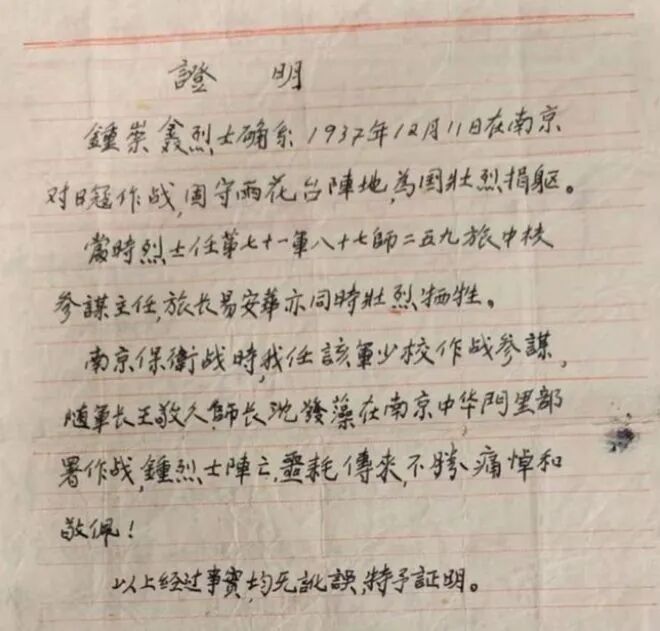 證明
鍾崇鑫烈士确系1937年12月11日在南京
对日寇作战,固守雨花台陣地,為国壯烈捐躯。
當時烈士任第七十一軍八十七師二五九旅中校
参謀主任,旅长易安華亦同時壯烈牺牲。
南京保衛战時,我任該軍少校作战参謀,
随軍长王敬久,師长沈發藻在南京中华門里部
署作战,鍾烈士陣亡,噩耗傳來,不勝痛悼和
敬佩!
以上经过事實,均无訛誤,特予証明。